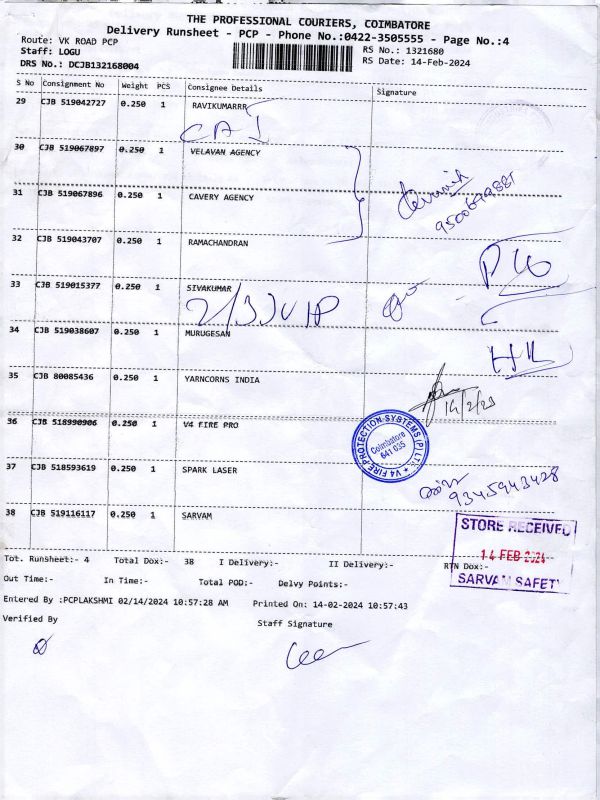 THE PROFESSIONAL COURIERS, COIMBATORE
Delivery Runsheet - PCP - Phone No.:0422-3505555 - Page No.:4
Route: VK ROAD PCP
RS No.: 1321680
Staff: LOGU
RS Date: 14-Feb-2024
DRS No.: DCJB132168004
S No Consignment No Weight PCS Consignee Details Signature
29 CJB 519042727 0.250 1 RAVIKUMARRR
30 CJB 519067897 0.250 1 VELAVAN AGENCY
31 CJB 519067896 0.250 1 CAVERY AGENCY
9500699881
32 CJB 519043707 0.250 1 RAMACHANDRAN
33 CJB 519015377 0.250 1 SIVAKUMAR
34 CJB 519038607 0.250 1 MURUGESAN
35 CJB 80085436 0.250 1 YARNCORNS INDIA
36 CJB 518990906 0.250 1 V4 FIRE PRO
V4 FIRE PROTECTION SYSTEMS (P) LTD.
Coimbatore
641 035
37 CJB 518593619 0.250 1 SPARK LASER
9345943428
38 CJB 519116117 0.250 1 SARVAM
STORE RECEIVED
14 FEB 2024
SARVAM SAFETY
Tot. Runsheet:- 4 Total Dox:- 38 I Delivery:- II Delivery:- RTN Dox:-
Out Time:- In Time:- Total POD:- Delvy Points:-
Entered By :PCPLAKSHMI 02/14/2024 10:57:28 AM Printed On: 14-02-2024 10:57:43
Verified By Staff Signature